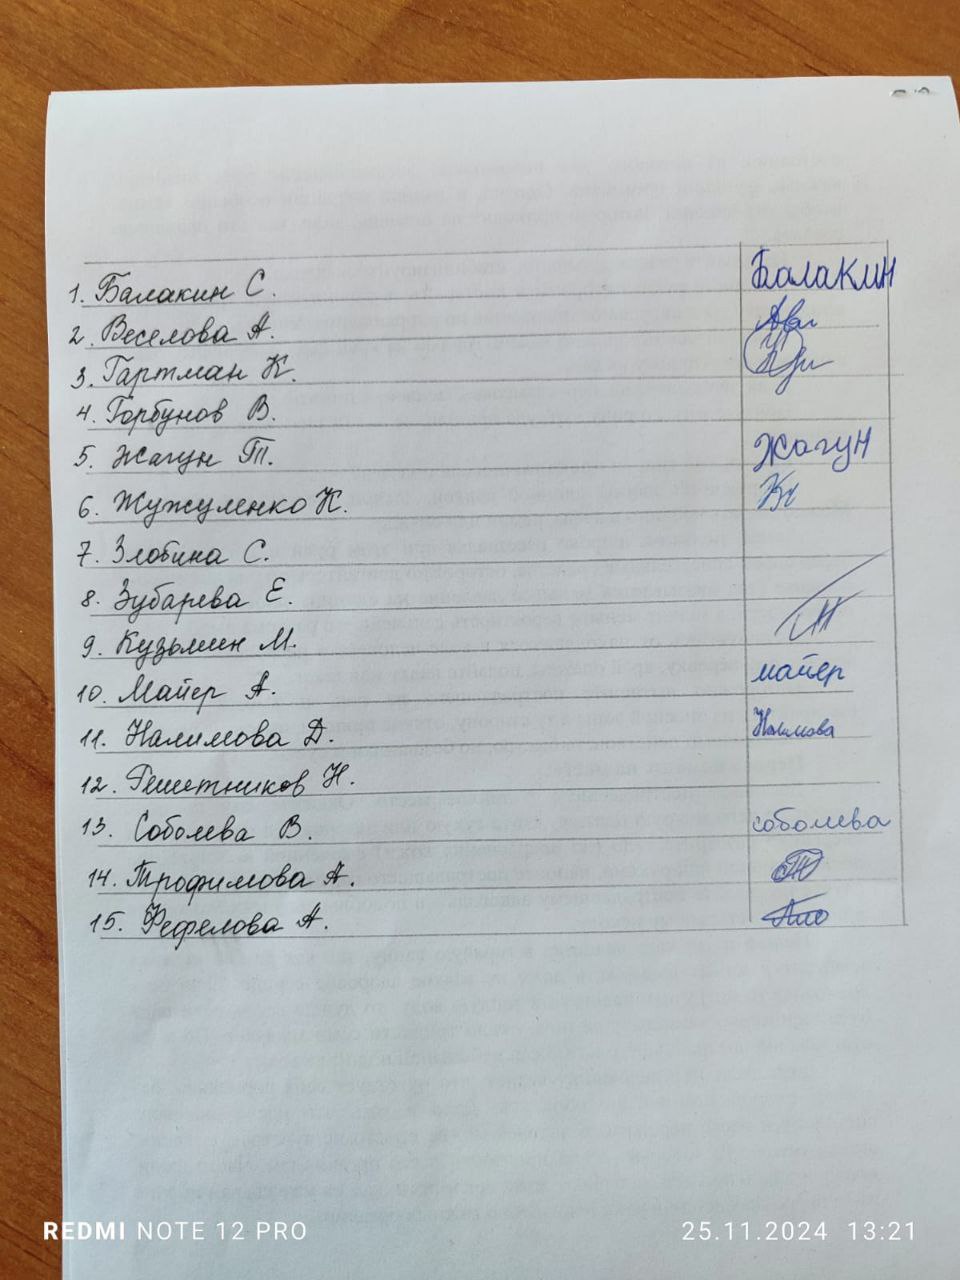 1. Балакин С. Балакин
2. Веселова А.
3. Гартман К.
4. Горбунов В.
5. Жагун Т. Жагун
6. Жужуленко К.
7. Злобина С.
8. Зубарева Е.
9. Кузьмин М.
10. Майер А. майер
11. Налимова Д. Налимова
12. Решетников Н.
13. Соболева В. соболева
14. Трофимова А.
15. Фефелова А.
REDMI NOTE 12 PRO 25.11.2024 13:21